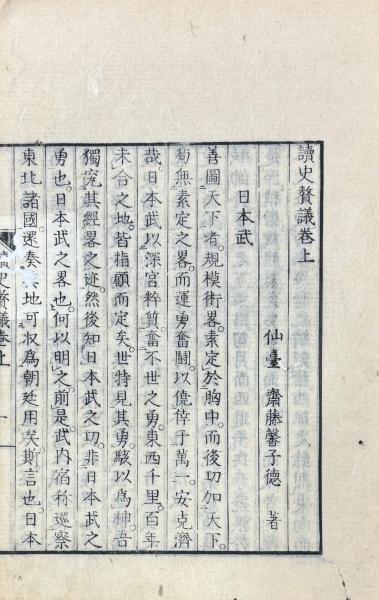 讀史贅議卷上
仙臺 齋藤馨子德 著
日本武
善圖天下者。規模術畧。素定於胸中。而後功加天下。
苟無素定之畧。而運勇奮鬪。以僥倖于萬一。安克濟
哉。日本武以深宮粹質。奮不世之勇。東西千里。百年
未合之地。皆指顧而定矣。世特見其勇。駭以爲神。吾
獨究其經畧之迹。然後知日本武之功。非日本武之
勇也。日本武之畧也。何以明之。前是武內宿祢巡察
東北諸國。還奏。其地可收爲朝廷用矣。斯言也。日本
史贅議卷上